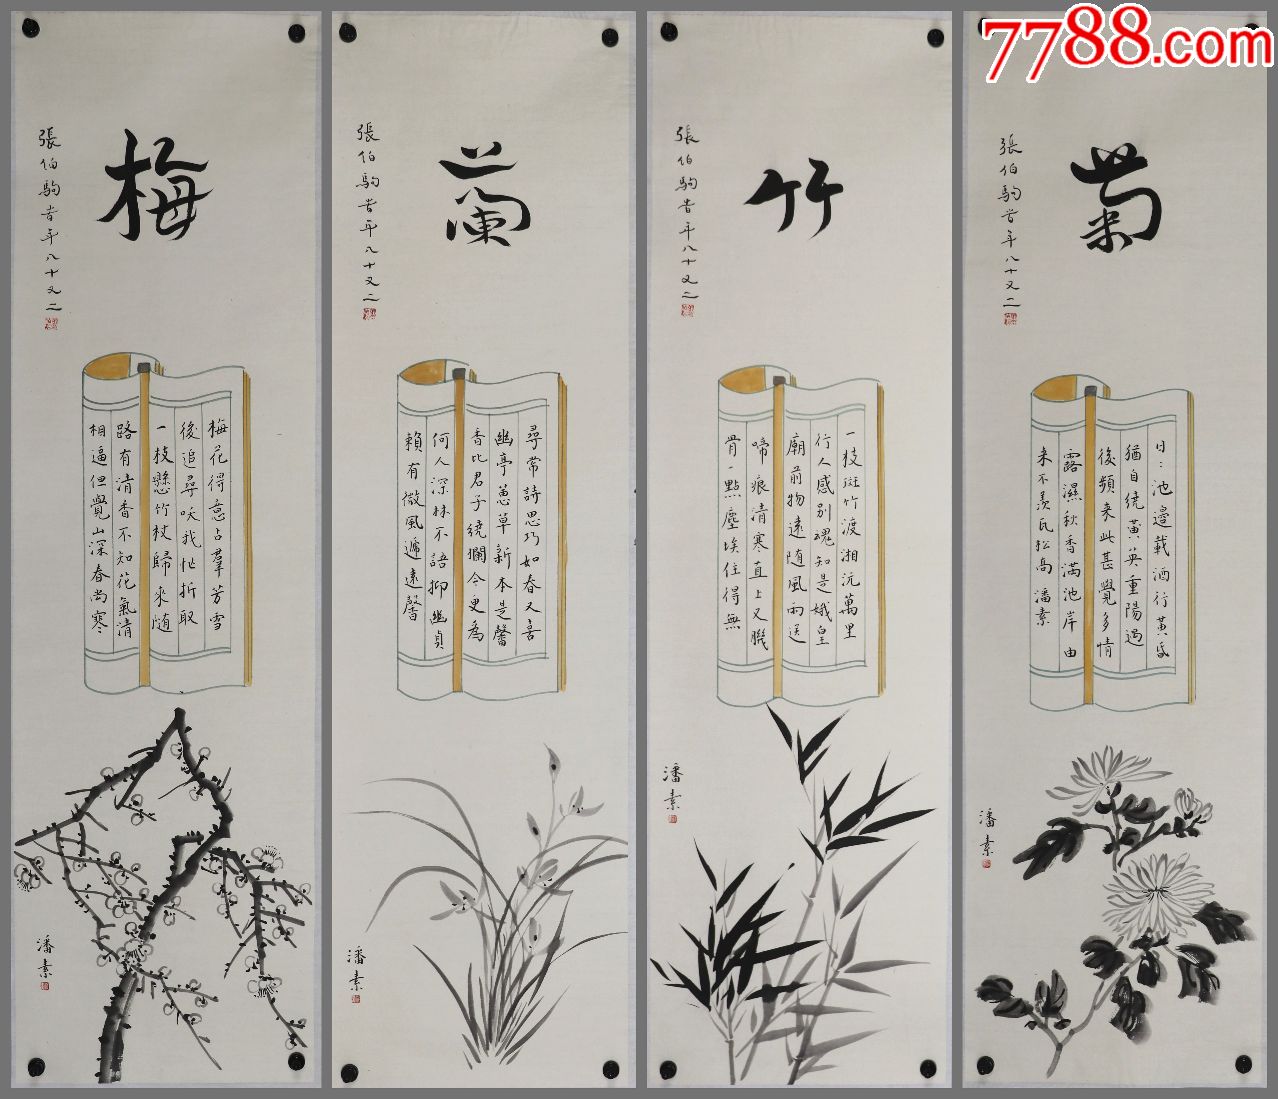 7788.com
梅
張伯駒昔年八十又二
梅花得意占羣芳雪
後追尋咲我忙折取
一枝懸竹杖歸來随
路有清香不知花氣清
相逼但覺山深春尚寒
潘素
蘭
張伯駒昔年八十又二
尋常詩思巧如春又喜
幽亭蕙草新本是馨
香比君子繞欄今更為
何人深林不語抑幽貞
賴有微風遞遠馨
潘素
竹
張伯駒昔年八十又二
一枝斑竹渡湘沅萬里
行人感别魂知是娥皇
廟前物遠随風雨送
啼痕清寒直上又
骨一點塵埃住得無
潘素
菊
張伯駒昔年八十又二
日〻池邊載酒行黃昏
猶自繞黃英重陽過
後頻来此甚覺多情
露濕秋香滿池岸由
来不羨瓦松高潘素
潘素